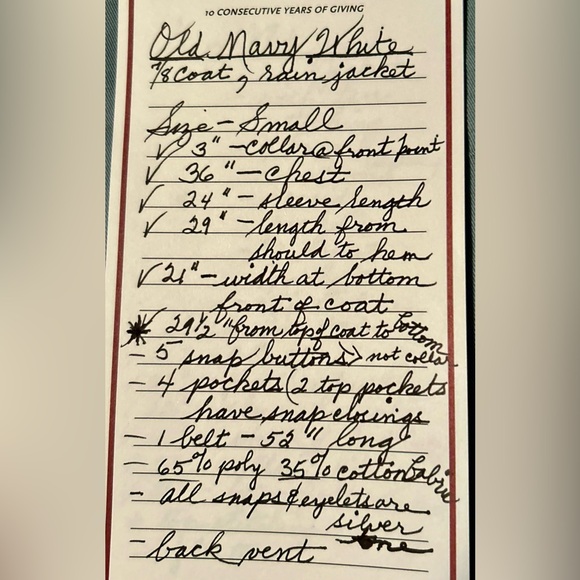 10 CONSECUTIVE YEARS OF GIVING
Old Navy White
7/8 coat, rain jacket
Size - Small
✓ 3" - collar @ front point
✓ 36" - chest
✓ 24" - sleeve length
✓ 29" - length from
should to hem
✓ 21" - width at bottom
front of coat
* 29 1/2" from top of coat to bottom
- 5 snap buttons > not collar
- 4 pockets (2 top pockets
have snap closings
- 1 belt - 52" long
- 65% poly 35% cotton fabric
- all snaps & eyelets are
silver
tone
- back vent